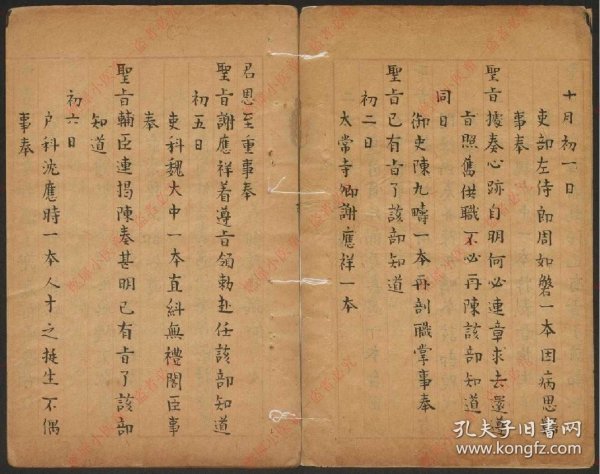 十月初一日
吏部左侍郎周如磐一本因病思
事奉
聖旨據奏心跡自明何必連章求去還遵
旨照舊供職不必再陳該部知道
同日
御史陳九疇一本再剖職掌事奉
聖旨已有旨了該部知道
初二日
太常寺卿謝應祥一本
君恩至重事奉
聖旨謝應祥着遵旨領勅赴任該部知道
初五日
吏科魏大中一本直糾無禮閣臣事
奉
聖旨輔臣連揭陳奏甚明已有旨了該部
知道
初六日
戶科沈應時一本人才之挺生不偶
事奉
孔夫子旧书网
www.kongfz.com